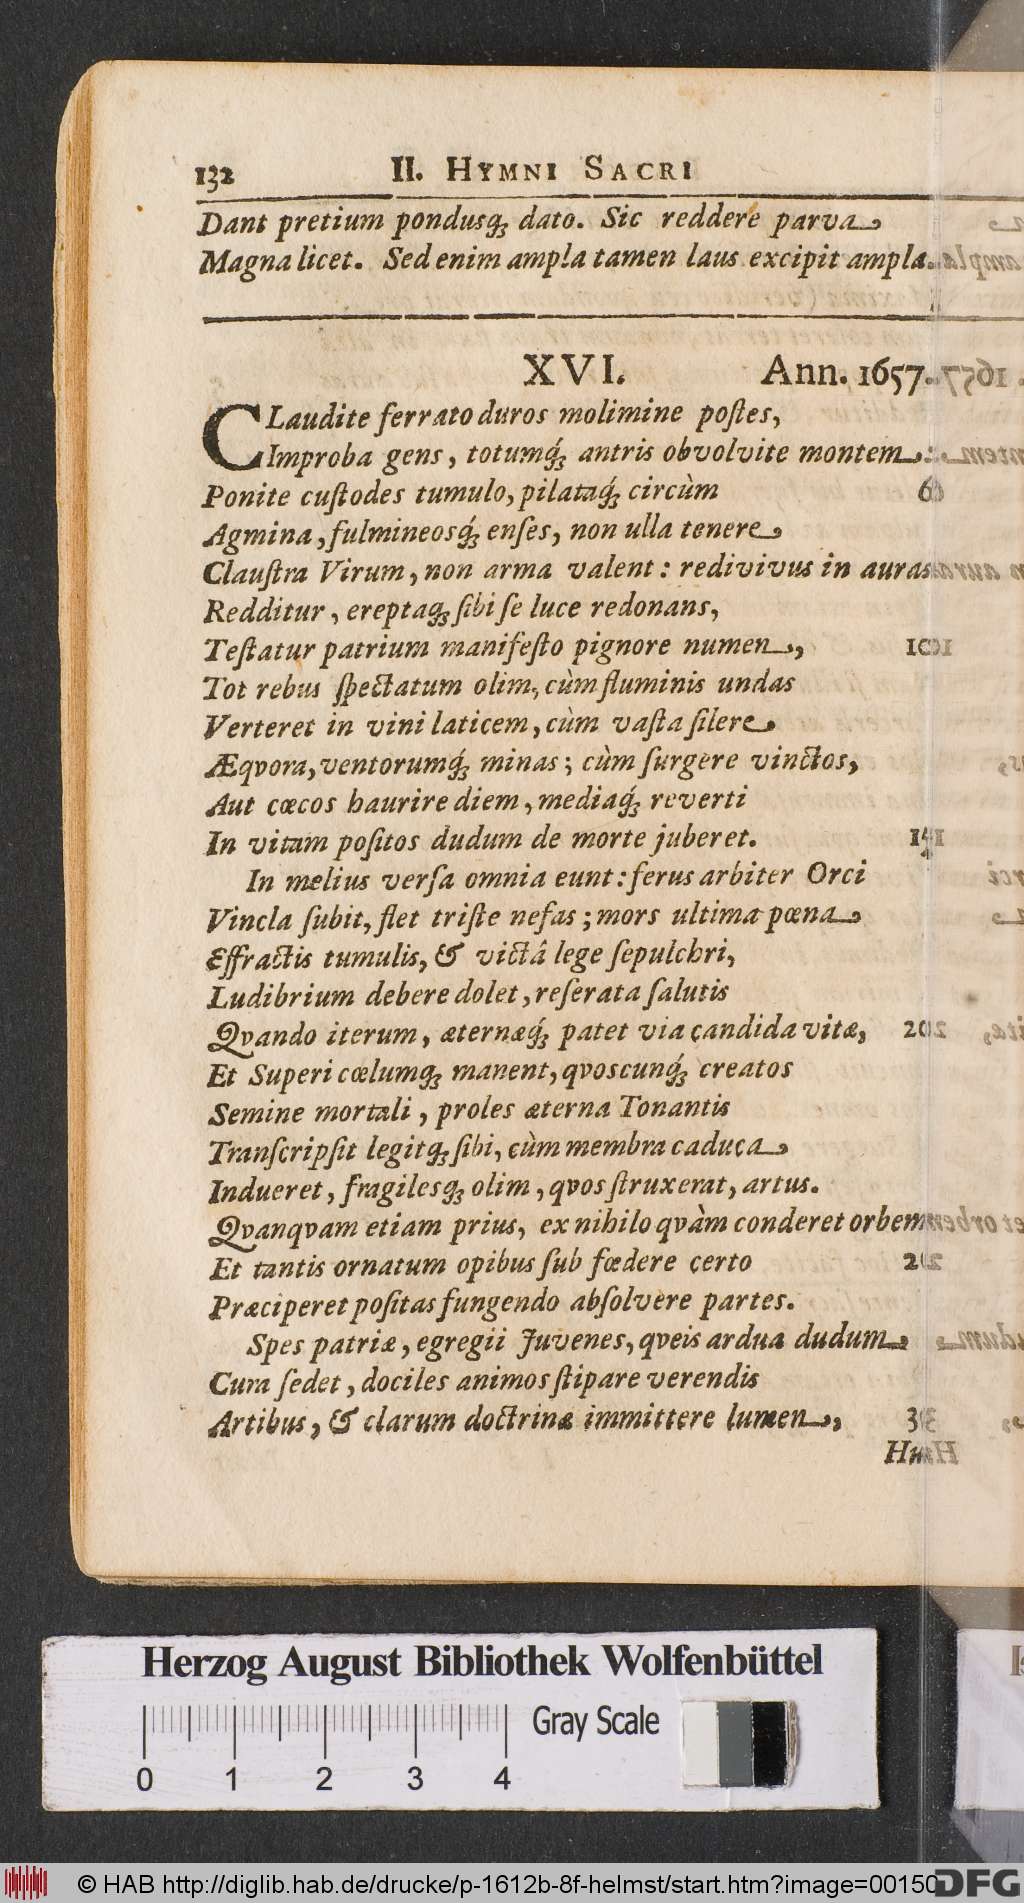 132 II. HYMNI SACRI
Dant pretium pondusq́; dato. Sic reddere parva
Magna licet. Sed enim ampla tamen laus excipit ampla.
XVI. Ann. 1657.
CLaudite ferrato duros molimine poſtes,
Improba gens, totumq́; antris obvolvite montem:
Ponite cuſtodes tumulo, pilataq́; circùm
Agmina, fulmineosq́; enſes, non ulla tenere
Clauſtra Virum, non arma valent: redivivus in auras
Redditur, ereptaq; ſibi ſe luce redonans,
Teſtatur patrium manifeſto pignore numen,
Tot rebus ſpectatum olim, cùm fluminis undas
Verteret in vini laticem, cùm vaſta ſilere
Æqvora, ventorumq́; minas; cùm ſurgere vinctos,
Aut cœcos haurire diem, mediaq́; reverti
In vitam poſitos dudum de morte juberet.
In melius verſa omnia eunt: ferus arbiter Orci
Vincla ſubit, flet triſte nefas; mors ultima pœna
Effractis tumulis, & victâ lege ſepulchri,
Ludibrium debere dolet, reſerata ſalutis
Qvando iterum, æternæq́; patet via candida vitæ, 20
Et Superi cœlumq; manent, qvoscunq́; creatos
Semine mortali, proles æterna Tonantis
Tranſcripſit legitq; ſibi, cùm membra caduca
Indueret, fragilesq; olim, qvos ſtruxerat, artus.
Qvanqvam etiam prius, ex nihilo qvàm conderet orbem
Et tantis ornatum opibus ſub fœdere certo
Præciperet poſitas fungendo abſolvere partes.
Spes patriæ, egregii Juvenes, qveis ardua dudum
Cura ſedet, dociles animos ſtipare verendis
Artibus, & clarum doctrinæ immittere lumen,
Herzog August Bibliothek Wolfenbüttel
Gray Scale
0 1 2 3 4
© HAB http://diglib.hab.de/drucke/p-1612b-8f-helmst/start.htm?image=00150
DFG